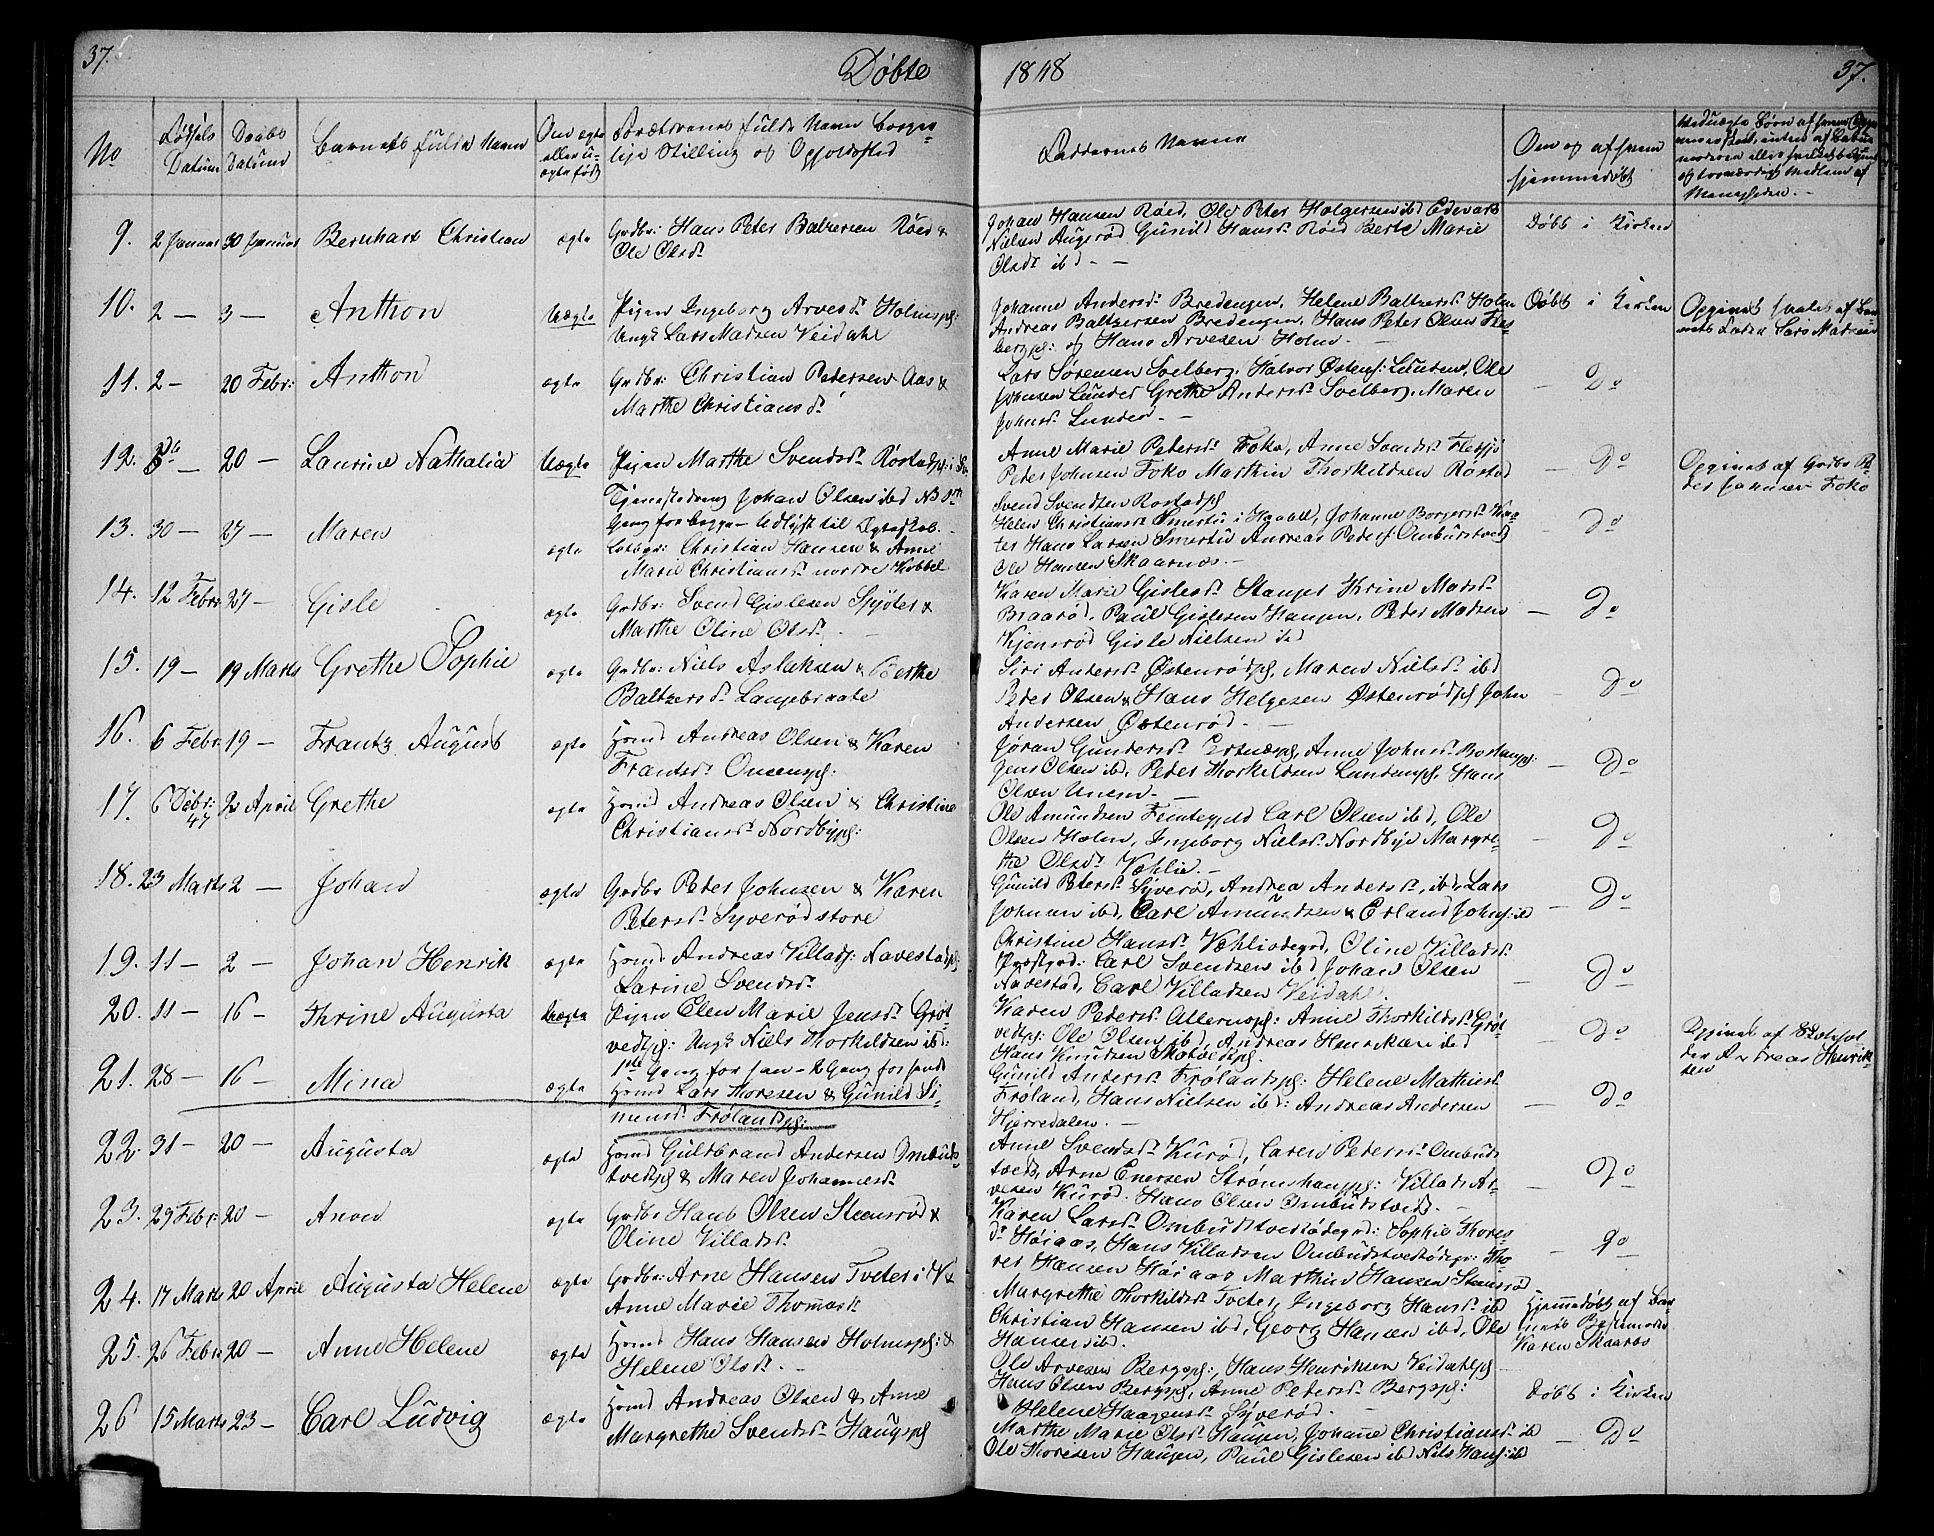 37.
Døbte
1848
37.
No
Fødsels Datum
Daabs Datum
Barnets fulde Navn
Om ægte eller uægte født
Forældrenes fulde Navn Borgerlige Stilling og Opholdsted
Faddernes Navne
Om og af hvem hjemmedøbt
9. 2 Januar 30 Januar Bernhart Christian ægte Grdbr: Hans Peter Baltzersen Röed &
Ole Olsdr
Johan Hansen Röed, Ole Peter Holgersen ibd Edvart
Nielsen Augerød Gunild Hansdr Röed Berte Marie
Olsdr ibd
Døbt i Kirken
10. 2 — 3 — Anthon Uægte Pigen Ingeborg Arvesdr Holmspl:
Ungk Lars Madsen Veidahl
Johanne Andersdr Bredengen, Helene Baltzersdr Holm
Andreas Baltzersen Bredengen, Hans Peter Olsen
og Hans Arvesen Holm
Døbt i Kirken
Opgivet af
Lars Madsen
11. 2 — 20 Febr: Anthon ægte Grdbr: Christian Pedersen Aas &
Marthe Christiansdr
Lars Sörensen Soelberg, Halvor Østens: Lunden, Ole
Johnsen Lunden Grethe Andersdr Soelberg, Maren
Johnsdr Lunden
— Do
12. — 20 — Laurine Nathalia Uægte Pigen Marthe Svendsdr Röstadpl:
Johan Olsen ibd NB
Gang for begge — Udlyst til Ægteskab
Anne Marie Petersdr Foko, Anne Svendsdr
Peter Johnsen Foko Marthin Thorkildsen Röstad
Svend Svendsen Rostadpl
— Do
Opgivet af Grdbr Peter Johnsen Foko
13. 30 — 27 — Maren ægte Christian Hansen & Anne
Marie Christiansdr nordre Kobbel
Helen Christiansdr Smertu i Haabøl, Johanne Borgersdr
Hans Larsen Smertu Andreas Peders: Ombudstvedt
Ole Hansen Skaarnes
— do
14. 12 Febr: 27 — Gisle ægte Grdbr: Svend Gislesen Spjöter &
Marthe Oline Olsdr
Karen Marie Gislesdr Haugen Krine Madsdr
Braarød, Paul Gislesen Haugen, Peder Madsen
Kjensrød Gisle Nielsen ibd
— Do
15. 19 — 19 Marts Grethe Sophie ægte Grdbr: Niels Aslaksen & Berthe
Baltzersdr Langebraate
Siri Andersdr Østenrödpl, Maren Nielsdr ibd
Peder Olsen & Hans Helgesen Østenrödpl John
Andersen Østenrød
— Do
16. 6 Febr 19 — Frantz August ægte Hsmd Andreas Olsen & Karen
Frantsdr Onsenpl:
Jöran Gundersdr Anne Johnsdr
Jens Olsen ibd, Peder Thorkildsen Lundempl, Hans
Olsen Unem
— Do
17. 6 Debr: 47 2 April Grethe ægte Hsmd Andreas Olsen & Christine
Christiansdr Nordbypl:
Ole Amundsen Femtegjeld Carl Olsen ibd, Ole
Olsen Holm, Ingeborg Nielsdr Nordbye Margrethe Olsdr Vehlie
— Do
18. 23 Marts 2 — Johan ægte Grdbr Peter Johnsen & Karen
Petersdr Syverød store
Gunild Petersdr Syverø, Andrea Andersdr ibd, Lars
Johnsen ibd, Carl Amundsen & Erland Johns: ibd
— Do
19. 11 — 2 — Johan Henrik ægte Hsmd Andreas Villads: Navestadpl:
Larine Svendsdr
Christine Hansdr Vehlie, Oline Villadsdr
Carl Svendsen ibd Johan Olsen
Navestad, Carl Villadsen Veidahl
— Do
20. 11 — 16 — Thrine Augusta Uægte Pigen Elen Marie Jensdr Gröt-
vedtpl: Ungk Niels Thorkildsen ibd:
1ste Gang for han — 2 Gang for hende
Karen Pedersdr Anne Thorkildsdr Gröt-
vedtpl: Ole Olsen ibd, Andreas Henriksen ibd
Hans Knudsen
— Do
Opgivet af
Andreas Henriksen
21. 28 — 16 — Mina ægte Hsmd Lars Thoresen & Gunild Si-
mensdr Frølandpl:
Gunild Andersdr Frølandspl: Helene Mathisdr
Frøland, Hans Nielsen ibd: Andreas Andersen
Hjerredalen
— Do
22. 31 — 20 — Augusta ægte Hsmd Guldbrand Andersen Ombuds-
tvedtpl & Maren Johannesdr
Anne Svendsdr Kurød, Caren Petersdr Ombuds
tvedt, Arne Enersen Strømshaugpl: Villads Ar-
vesen Kurød. Hans Olsen Ombudstvedt
— Do
23. 29 Febr: 20 — Anven ægte Grdbr Hans Olsen Steensrød &
Oline Villadsdr
Karen Larsdr Ombudstvedt Sophie Thores-
dr Høiaas, Hans Villadsen Ombudstvedt Tho-
res Hansen Høiaas Marthin Hansen Steensrød
— Do
24. 17 Marts 20 April Augusta Helene ægte Grdbr: Arne Hansen Tveter i V &
Anne Marie Thomasdr
Margrethe Thorkildsdr Tveter, Ingeborg Hansdr ibd
Christian Hansen ibd, Georg Hansen ibd, Ole
Hansen ibd.
Hjemmedøbt af Bar-
nets Bestemoder
Karen Skaarbo
25. 26 Febr 20 — Anne Helene ægte Hsmd Hans Hansen Holmspl: &
Helene Olsdr
Ole Arvesen Bergspl:, Hans Henriksen Veidahlpl
Hans Olsen Bergspl, Anne Petersdr Bergspl:
Helene Haagensdr Syverød
Døbt i Kirken
26 15 Marts 23 — Carl Ludvig ægte Hsmd Andreas Olsen & Anne
Margrethe Svendsdr Haugspl
Marthe Marie Olsdr Haugen, Johanne Christiansdr ib
Ole Thoresen Haugen, Paul Gislesen ibd Nils Hans: ib
— Do